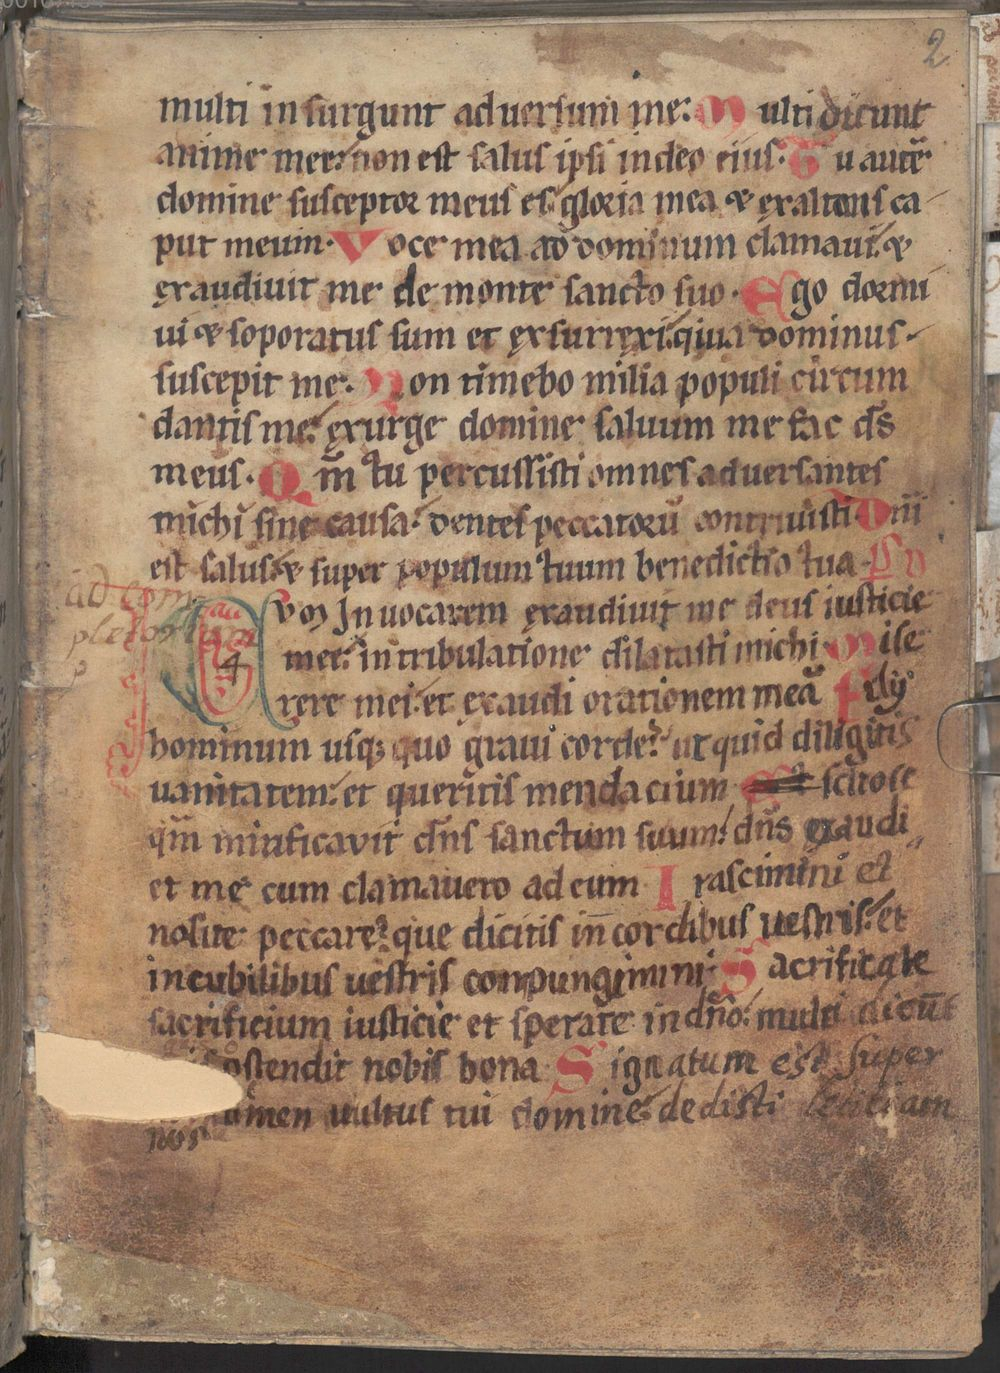 2
multi insurgunt adversum me: Multi dicunt
anime mee: non est salus ipsi in deo eius. Tu autē
domine susceptor meus es gloria mea & exaltans ca
put meum. Voce mea ad dominum clamavi: &
exaudivit me de monte sancto suo. Ego dormi
ui & soporatus sum et exsurrexi: quia dominus
suscepit me. Non timebo milia populi circum
dantis me: exurge domine saluum me fac ds̄
meus. Qm̄ tu percussisti omnes adversantes
michi sine causa: dentes peccatorū contriuisti. Dn̄i
est salus: & super populum tuum benedictio tua. Ps
ad com
pletorium
Cum Invocarem exaudivit me deus iusticie
4
mee: in tribulatione dilatasti michi. Mise
rere mei: et exaudi orationem meā Filij
hominum usq; quo gravi corde: ut quid diligitis
vanitatem: et queritis mendacium scitote
qm̄ mirificavit dn̄s sanctum suum: dn̄s exaudi
et me cum clamavero ad eum Irascimini et
nolite peccare: que dicitis in cordibus vestris: et
in cubilibus vestris conpungimini. Sacrificate
sacrificium iusticie et sperate in dn̄o: multi dicūt
ostendit nobis bona Signatum est super
nos
lumen vultus tui domine: dedisti leticiam